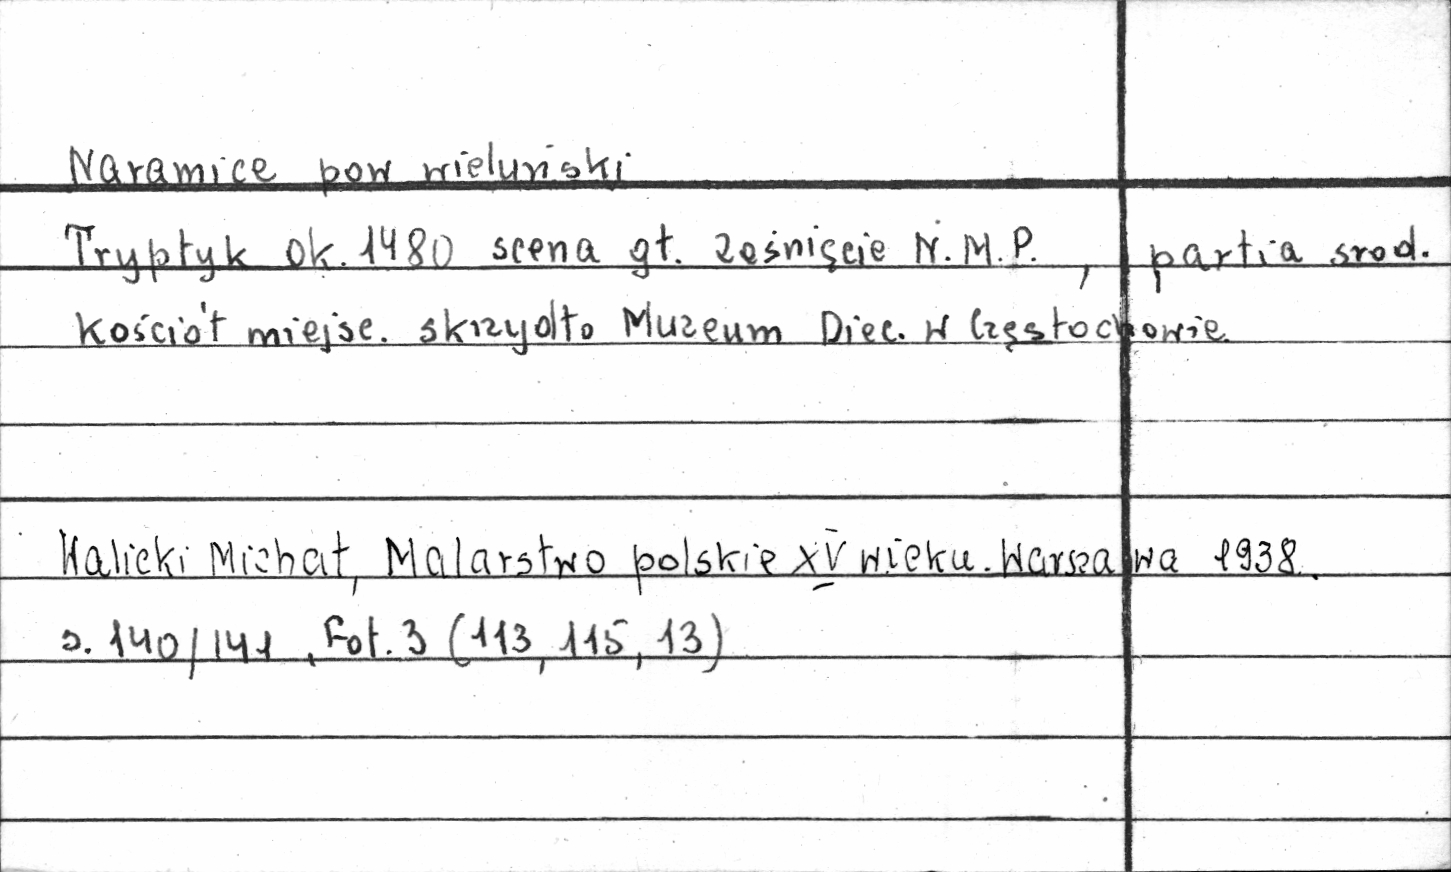 Naramice pow wieluński
Tryptyk ok. 1480 scena gł. zaśnięcie N.M.P. , partia srod.
kościół miejsc. skrzydło Muzeum Diec. w Częstochowie.
Walicki Michał, Malarstwo polskie XV wieku. Warszawa 1938.
s. 140/141, Fot. 3 (113, 115, 13)